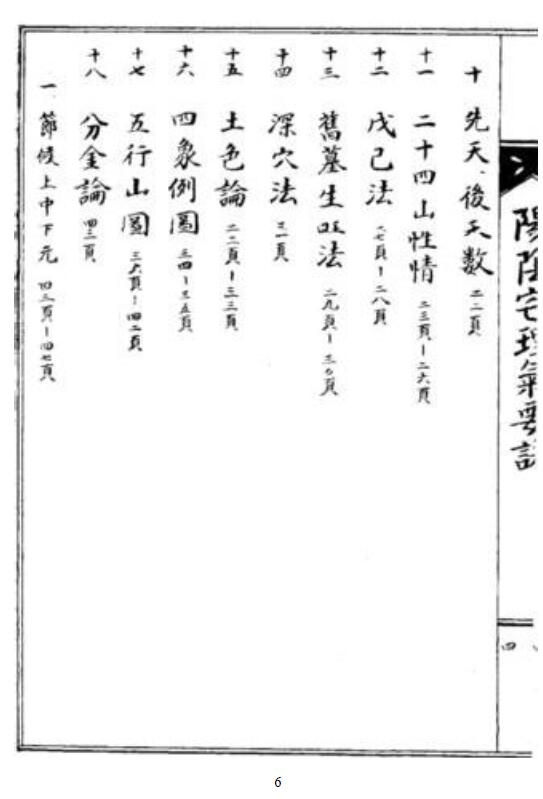 陽陰宅理氣要訣
四
十 先天、後天數 二二頁
十一 二十四山性情 二三頁－二六頁
十二 戊己法 二七頁－二八頁
十三 舊墓生旺法 二九頁－三〇頁
十四 深穴法 三一頁
十五 土色論 三二頁－三三頁
十六 四象例圖 三四－三五頁
十七 五行山圖 三六頁－四二頁
十八 分金論 四三頁
一、節候上中下元 四三頁－四七頁
6